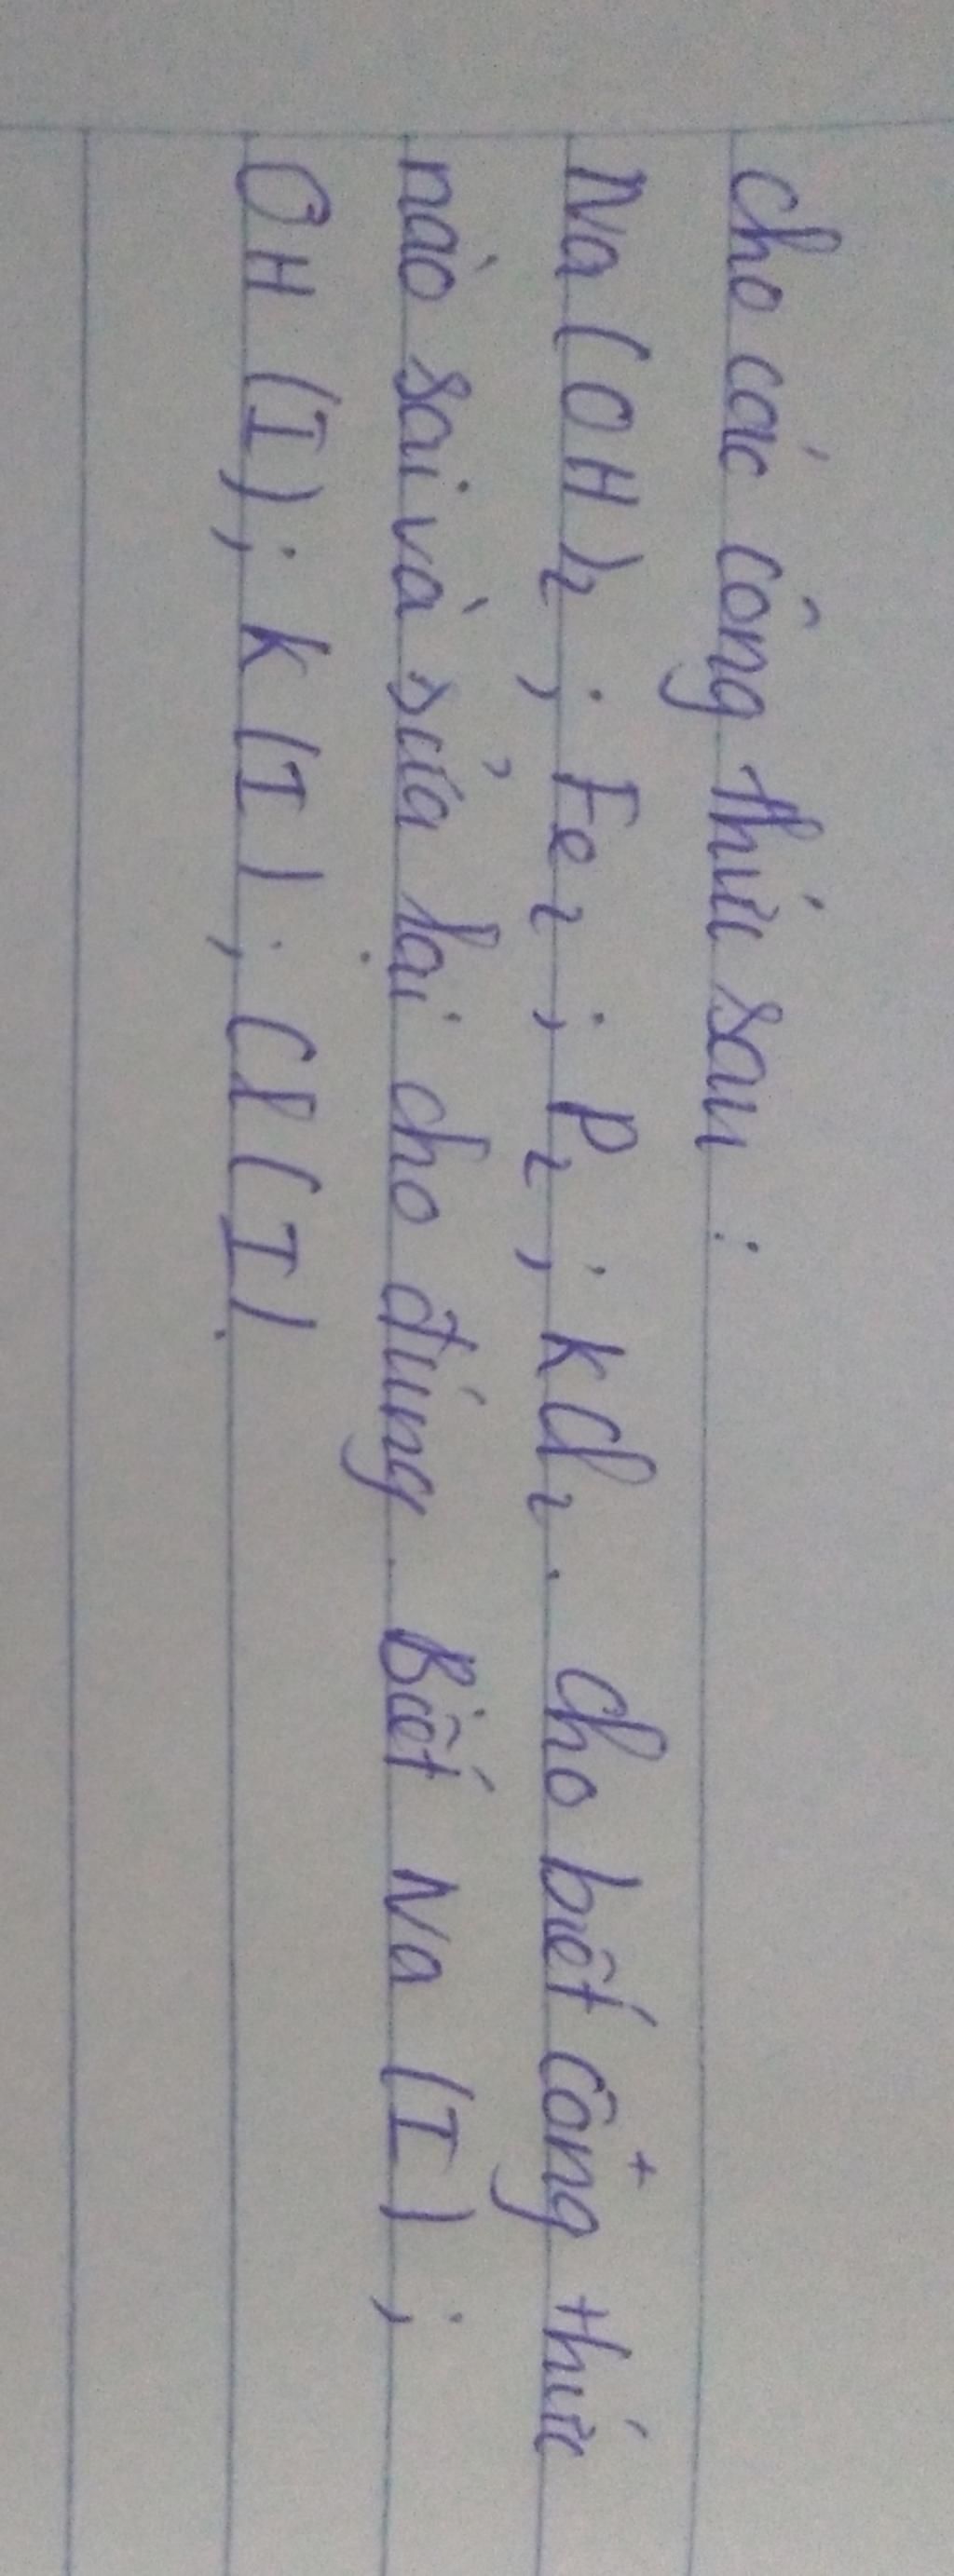 Cho các công thức sau :
Na(OH)₂ ; Fe₂ ; P₂ ; KCl₂. Cho biết công thức
nào sai và sửa lại cho đúng. Biết Na (I) ;
OH (I) ; K (I) ; Cl (I).